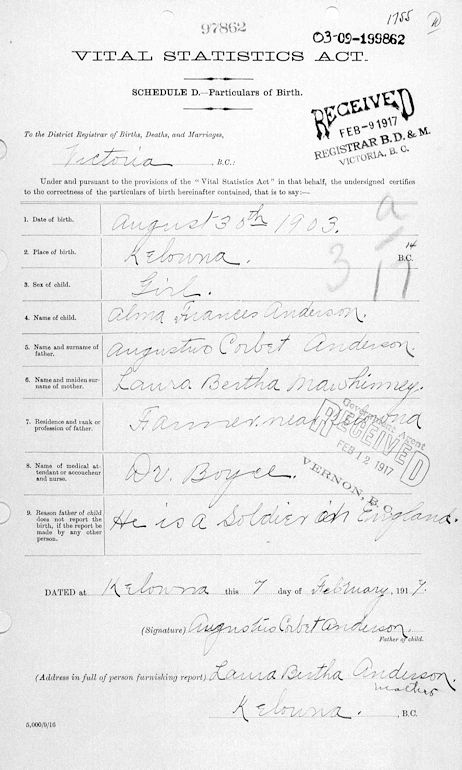 1755 11
97862
03-09-199862
VITAL STATISTICS ACT.
SCHEDULE D.—Particulars of Birth.
RECEIVED
FEB -9 1917
REGISTRAR B. D. & M.
VICTORIA, B. C.
To the District Registrar of Births, Deaths, and Marriages,
Victoria , B.C.:
Under and pursuant to the provisions of the "Vital Statistics Act" in that behalf, the undersigned certifies
to the correctness of the particulars of birth hereinafter contained, that is to say:—
1. Date of birth. August 30th 1903.
2. Place of birth. Kelowna. B.C.
3. Sex of child. Girl.
4. Name of child. Alma Frances Anderson.
5. Name and surname of
father. Augustus Corbet Anderson.
6. Name and maiden sur-
name of mother. Laura Bertha Mawhinney.
7. Residence and rank or
profession of father. Farmer near Kelowna
Government Agent
RECEIVED
FEB 12 1917
VERNON, B.C.
8. Name of medical at-
tendant or accoucheur
and nurse. Dr. Boyce.
9. Reason father of child
does not report the
birth, if the report be
made by any other
person. He is a Soldier in England.
DATED at Kelowna this 7 day of February, 1917.
(Signature) Augustus Corbet Anderson.
Father of child.
(Address in full of person furnishing report) Laura Bertha Anderson.
mother
Kelowna. , B.C.
5,000/9/16